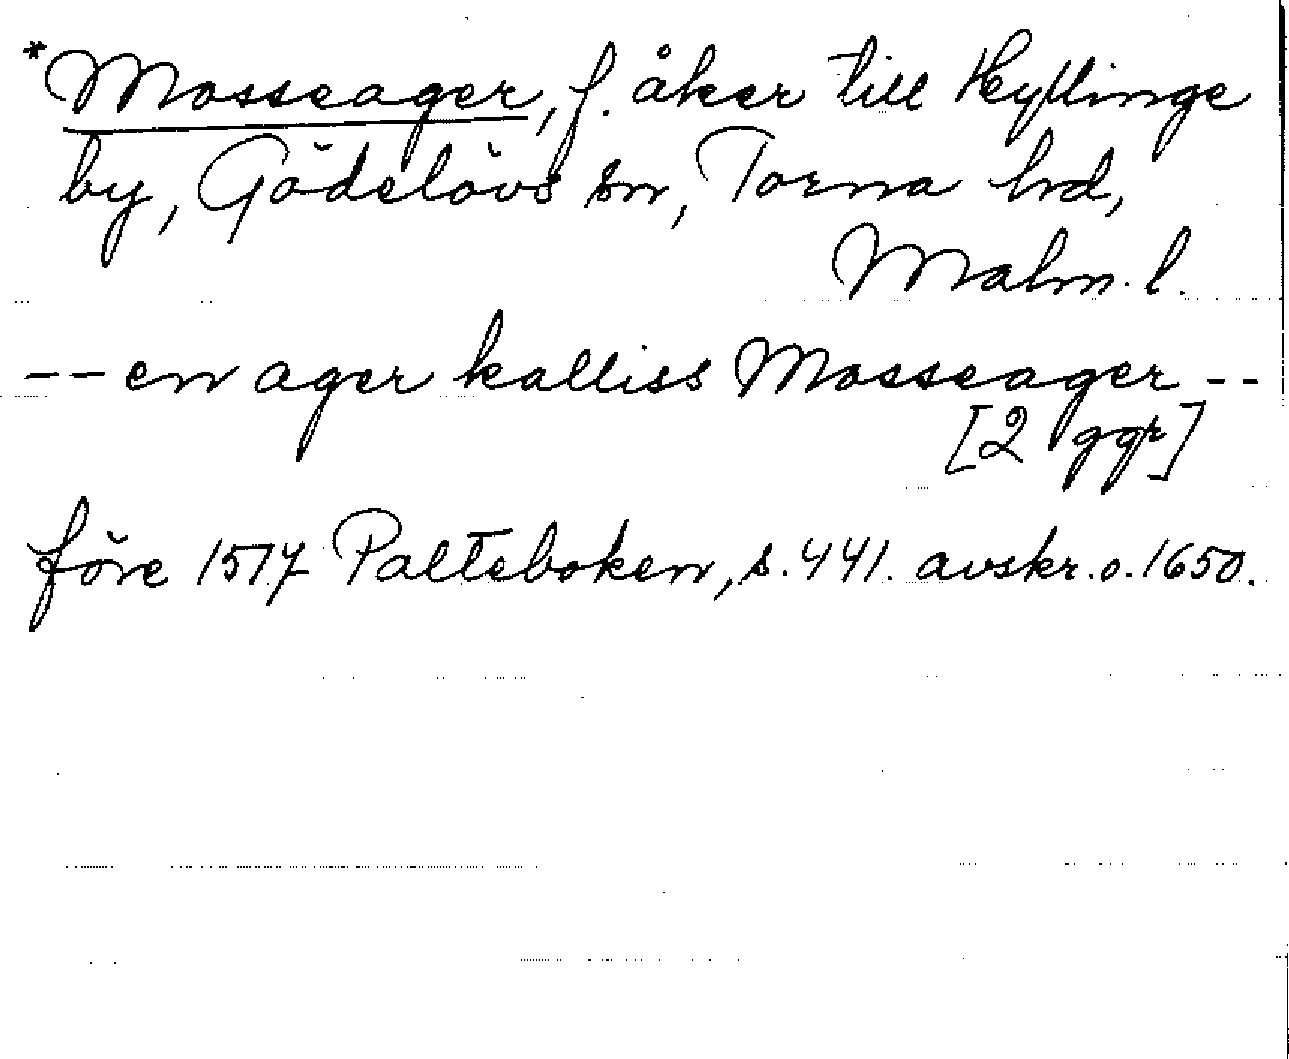 *Mosseager, f. åker till Heyllinge
by, Gödelövs sn, Torna hd,
Malm. l.
-- en ager kalliss Mosseager --
[2 ggr]
före 1517 Palteboken, s. 441. avskr. o. 1650.